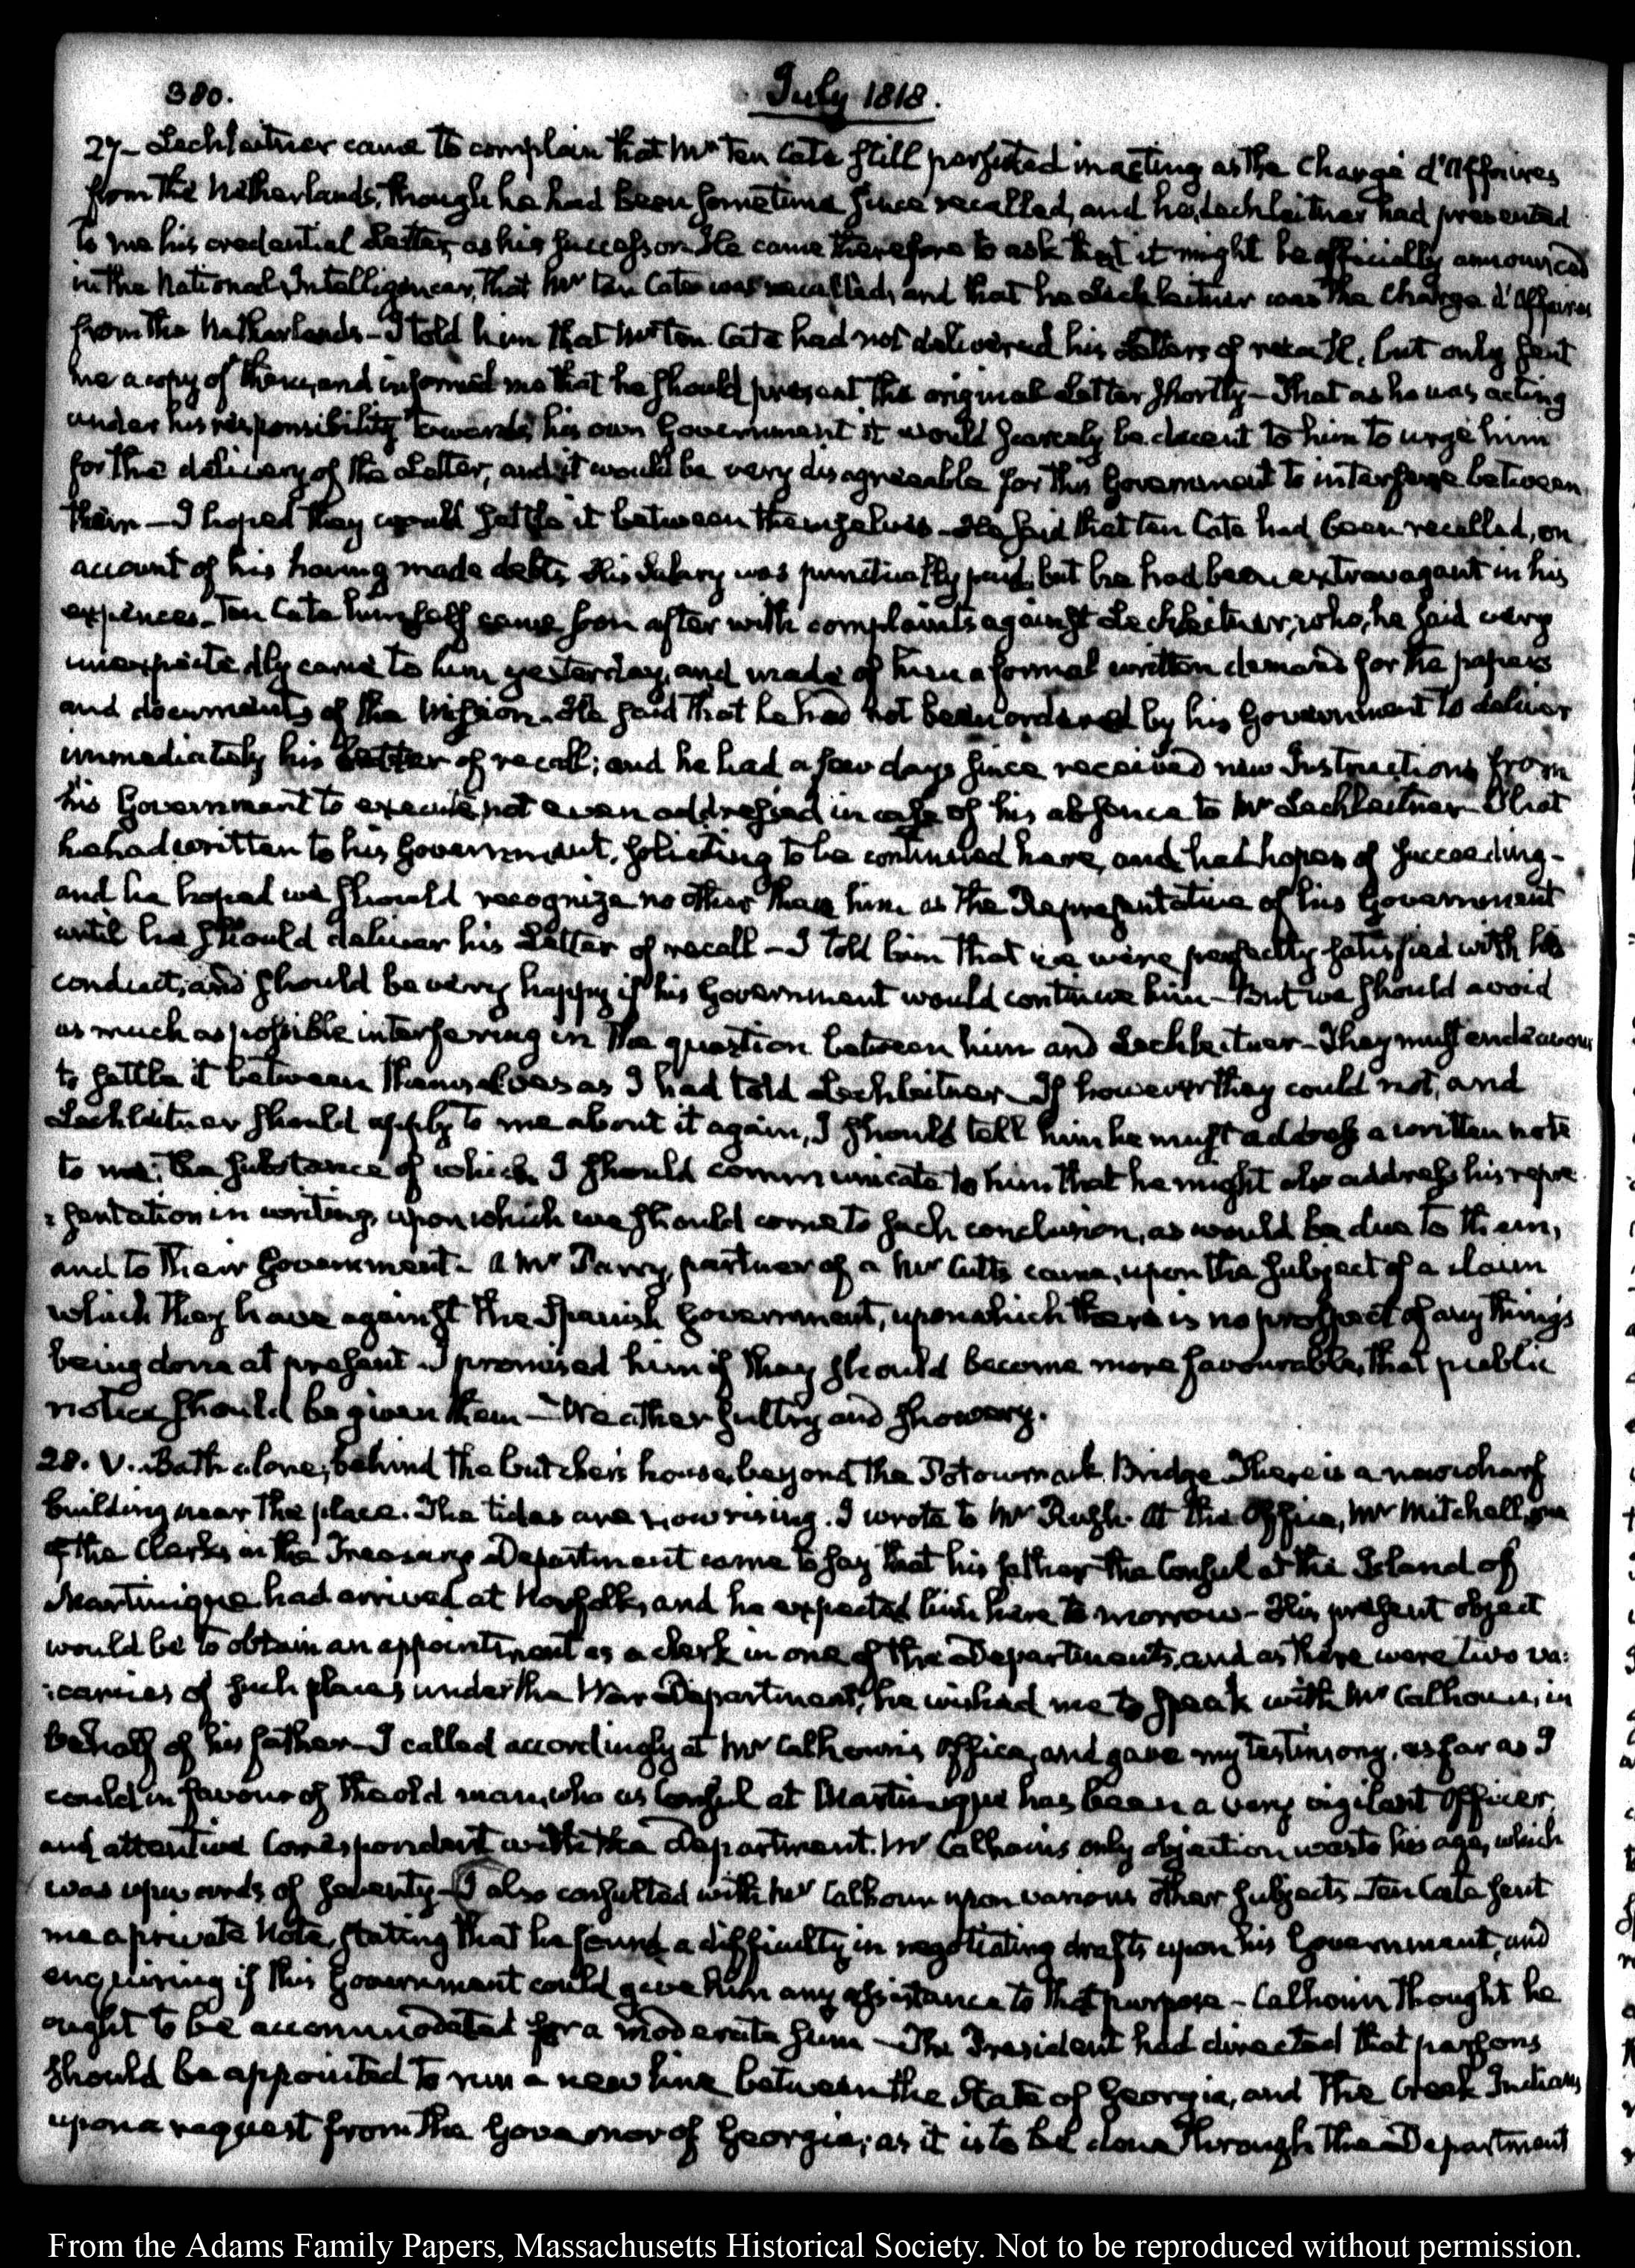 380.
July 1818.
27— Lechleitner came to complain that Mr. Ten Cate still persisted in acting as the Chargé d'Affaires
from the Netherlands, though he had been sometime since recalled, and he, Lechleitner had presented
to me his credential Letter, as his successor. He came therefore to ask that it might be officially announced
in the National Intelligencer, that Mr. ten Cate was recalled, and that he Lechleitner was the Chargé d'Affaires
from the Netherlands— I told him that Mr. ten Cate had not delivered his Letters of recall, but only sent
me a copy of them, and informed me that he should present the original Letter shortly— That as he was acting
under his responsibility towards his own Government it would scarcely be decent to him to urge him
for the delivery of the Letter, and it would be very disagreeable for this Government to interfere between
them— I hoped they would settle it between themselves— He said that ten Cate had been recalled, on
account of his having made debts. His Salary was punctually paid, but he had been extravagant in his
expences. Ten Cate himself came soon after with complaints against Lechleitner, who, he said very
unexpectedly came to him yesterday, and made of him a formal written demand for the papers
and documents of the Mission. He said that he had not been ordered by his Government to deliver
immediately his Letter of recall; and he had a few days since received new Instructions from
his Government to execute, not even addressed in case of his absence to Mr. Lechleitner— That
he had written to his Government, soliciting to be continued here, and had hopes of succeeding—
and he hoped we should recognize no other than him as the Representative of his Government
until he should deliver his Letter of recall— I told him that we were perfectly satisfied with his
conduct, and should be very happy if his Government would continue him— But we should avoid
as much as possible interfering in the question between him and Lechleitner— They must endeavour
to settle it between themselves as I had told Lechleitner— If however they could not, and
Lechleitner should apply to me about it again, I should tell him he must address a written note
to me; the substance of which I should communicate to him that he might also address his repre
:sentation in writing, upon which we should come to such conclusion, as would be due to them,
and to their Government. A Mr. Parry, partner of a Mr. Cutts came, upon the subject of a claim
which they have against the Spanish Government, upon which there is no prospect of any thing's
being done at present. I promised him if they should become more favourable, that public
notice should be given them— Weather sultry and showery.
28. V. Bath alone, behind the butcher's house, beyond the Potowmack Bridge. There is a new wharf
building near the place. The tides are now rising. I wrote to Mr. Rush. At the Office, Mr. Mitchell, one
of the Clerks in the Treasury Department came to say that his father the Consul at the Island of
Martinique had arrived at Norfolk, and he expected him here to morrow— His present object
would be to obtain an appointment as a clerk in one of the Departments, and as there were two va:
:cancies of such places under the War Department, he wished me to speak with Mr. Calhoun, in
behalf of his father— I called accordingly at Mr. Calhoun's Office, and gave my testimony, as far as I
could in favour of the old man, who as Consul at Martinique has been a very vigilant Officer,
and attentive Correspondent with the Department. Mr. Calhoun's only objection was to his age, which
was upwards of seventy— I also consulted with Mr. Calhoun upon various other subjects— Ten Cate sent
me a private Note, stating that he found a difficulty in negotiating drafts upon his Government, and
enquiring if this Government could give him any assistance to that purpose— Calhoun thought he
ought to be accommodated for a moderate sum— The President had directed that persons
should be appointed to run a new line between the State of Georgia, and the Creek Indians
upon a request from the Governor of Georgia; as it is to be done through the Department
From the Adams Family Papers, Massachusetts Historical Society. Not to be reproduced without permission.